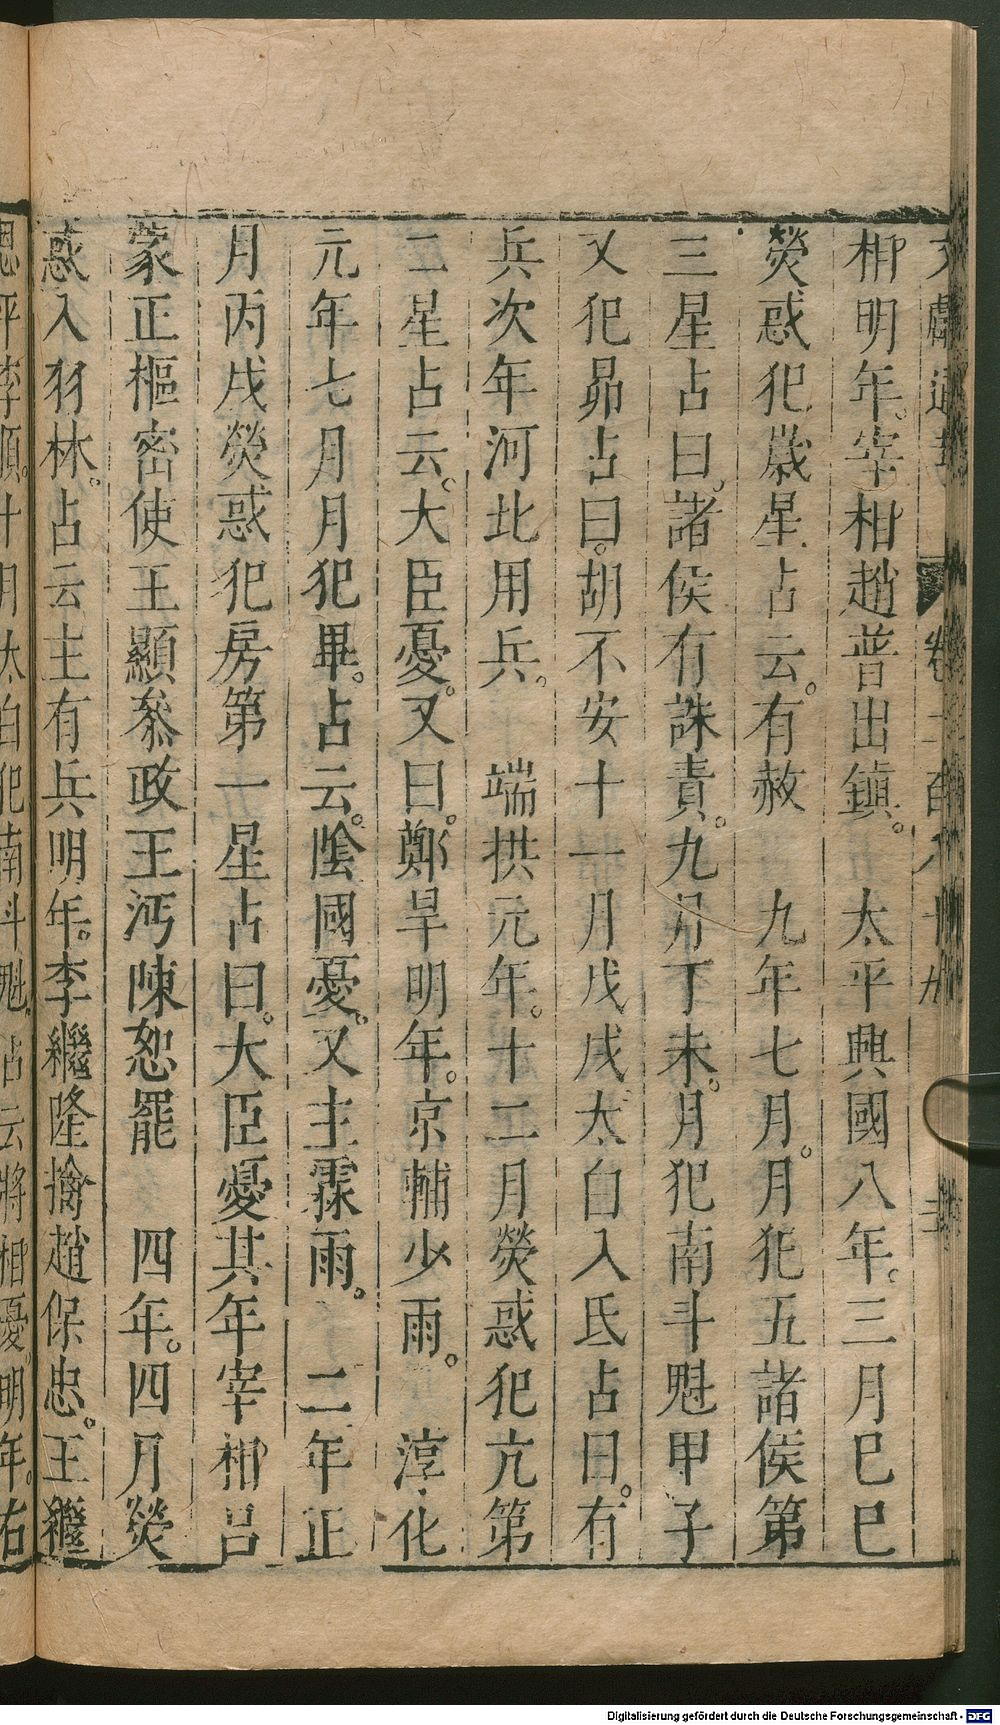 相明年。宰相趙普出鎮。　太平興國八年。三月巳巳
熒惑犯歲星占云。有赦　九年七月。月犯五諸侯第
三星占曰。諸侯有誅責。九月丁未。月犯南斗魁甲子
又犯昴占曰。胡不安十一月戊戌太白入氐占曰。有
兵次年河北用兵。　端拱元年。十二月熒惑犯亢第
二星占云。大臣憂。又曰。鄭旱明年。京輔少雨。　淳化
元年七月月犯畢。占云。隂國憂。又主霖雨。　二年正
月丙戌熒惑犯房第一星占曰。大臣憂其年宰相呂
蒙正樞密使王顯叅政王沔陳恕罷　四年。四月熒
惑入羽林。占云主有兵明年。李繼隆擒趙保忠。王繼
恩平李順。十月太白犯南斗魁。占云將相憂。明年。右
Digitalisierung gefördert durch die Deutsche Forschungsgemeinschaft - DFG